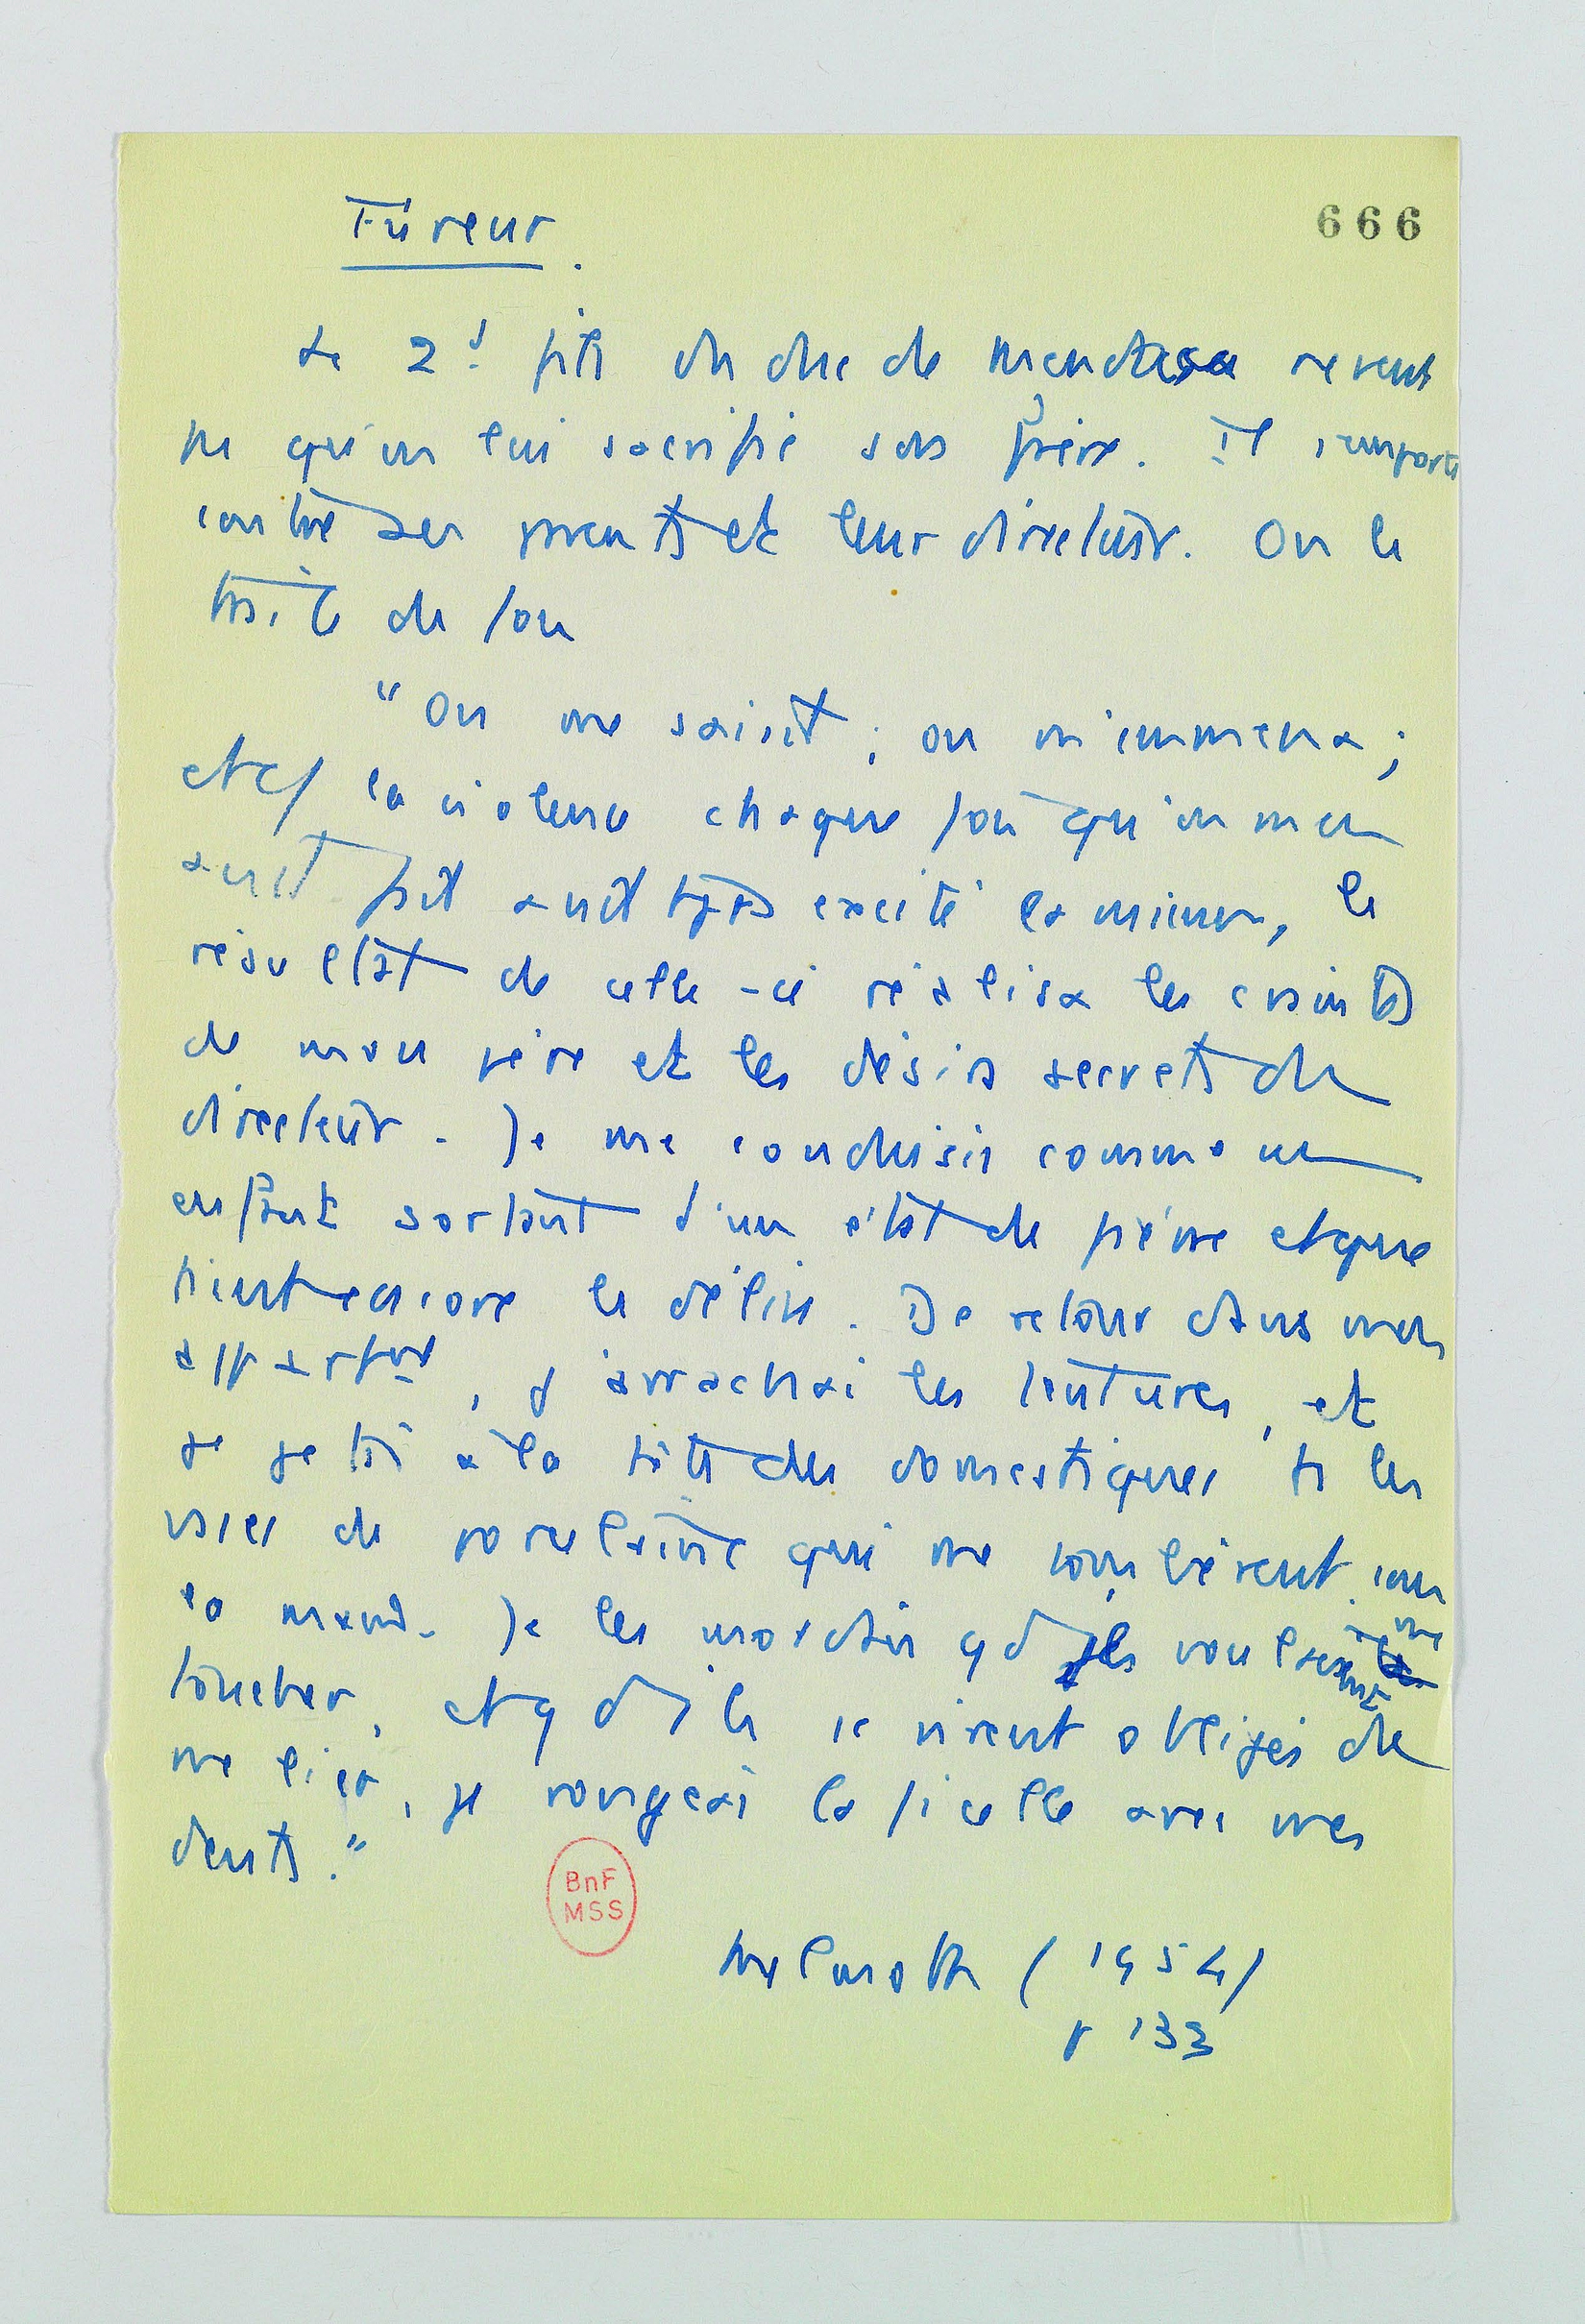 Fureur.
666
Le 2d fils du duc de Mendoza ne veut
pas qu'on lui sacrifie son frère. Il s'emporte
contre ses parents et leur directeur. On le
traite de fou
"On me saisit ; on m'emmena ;
et cô la violence chaque fois qu'on m'en
avait fait avait tjrs excité la mienne, le
résultat de celle-ci réalisa les craintes
de mon père et les désirs secrets du
directeur. Je me conduisis comme un
enfant sortant d'un état de fièvre et que
tient encore le délire. De retour dans mon
appartmt, j'arrachai les tentures, et
je jetai à la tête des domestiques ts les
vases de porcelaine qui me tombèrent sous
la main. Je les mordais qd ils voulaient me
toucher, et qd ils se virent obligés de
me lier, je rongeai la ficelle avec mes
dents."
BnF
MSS
Melmoth (1954)
p 133